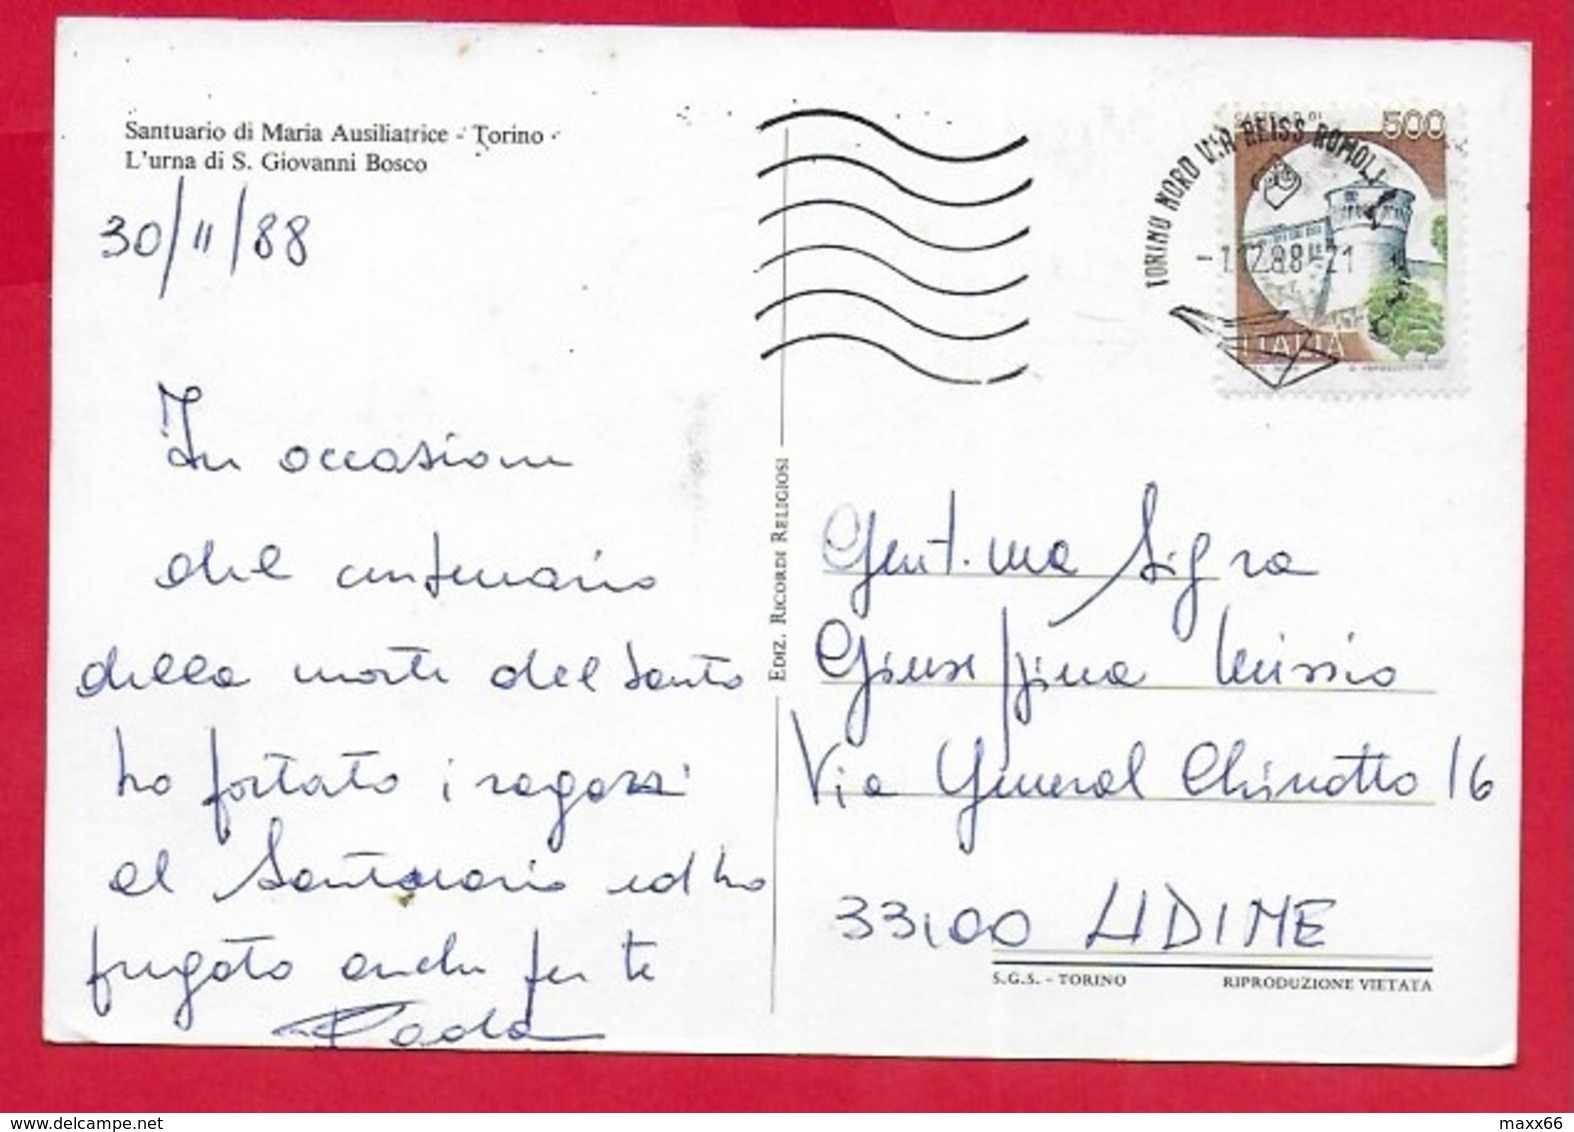 Santuario di Maria Ausiliatrice - Torino
L'urna di S. Giovanni Bosco
30/11/88
In occasione
del centenario
della morte del Santo
ho portato i ragazzi
al Santuario ed ho
pregato anche per te
Paola
EDIZ. RICORDI RELIGIOSI
TORINO NORD VIA REISS ROMOLI
-1.12.88-21
500
ITALIA
Gent.ma Sig.ra
Giuseppina Missio
Via General Chinotto 16
33100 UDINE
S.G.S. - TORINO
RIPRODUZIONE VIETATA
delcampe.net
maxx66